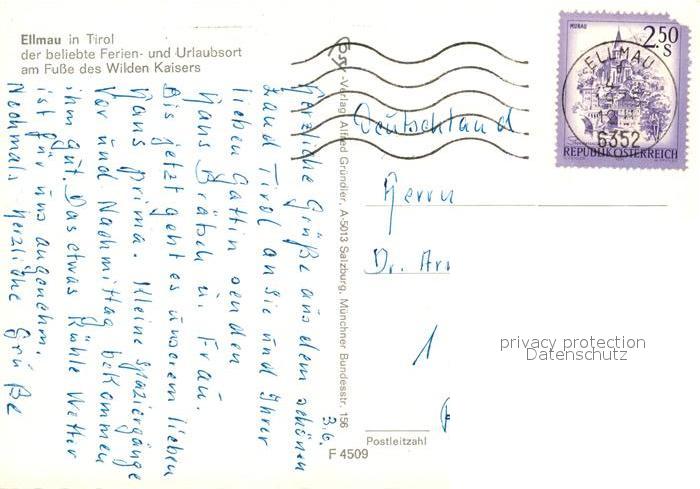 Ellmau in Tirol
der beliebte Ferien- und Urlaubsort
am Fuße des Wilden Kaisers
3.6.
Herzliche Grüße aus dem schönen
Land Tirol an Sie und Ihrer
lieben Gattin senden
Hans Brätsch u. Frau.
Bis jetzt geht es unserem lieben
Hans prima. Kleine Spaziergänge
Vor und Nachmittag bekommen
ihm gut. Das etwas kühle Wetter
ist für uns angenehm.
Nochmals herzliche Grüße
-Verlag Alfred Gründler, A-5013 Salzburg, Münchner Bundesstr. 156
MURAU
2.50
S
REPUBLIK ÖSTERREICH
ELLMAU
6352
Deutschland
Herrn
Dr.
privacy protection
Datenschutz
Postleitzahl
F 4509